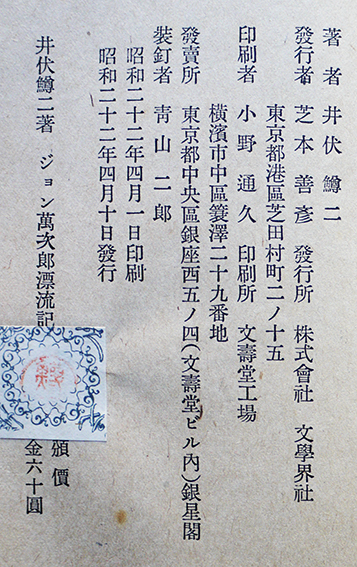 著者 井伏鱒二
發行者 芝本善彥 發行所 株式會社 文學界社
東京都港區芝田村町二ノ十五
印刷者 小野通久 印刷所 文壽堂工場
橫濱市中區簑澤二十九番地
發賣所 東京都中央區銀座西五ノ四(文壽堂ビル內)銀星閣
裝釘者 靑山二郎
昭和二十二年四月一日印刷
昭和二十二年四月十日發行
井伏鱒二著 ジョン萬次郎漂流記
頒價
金六十圓